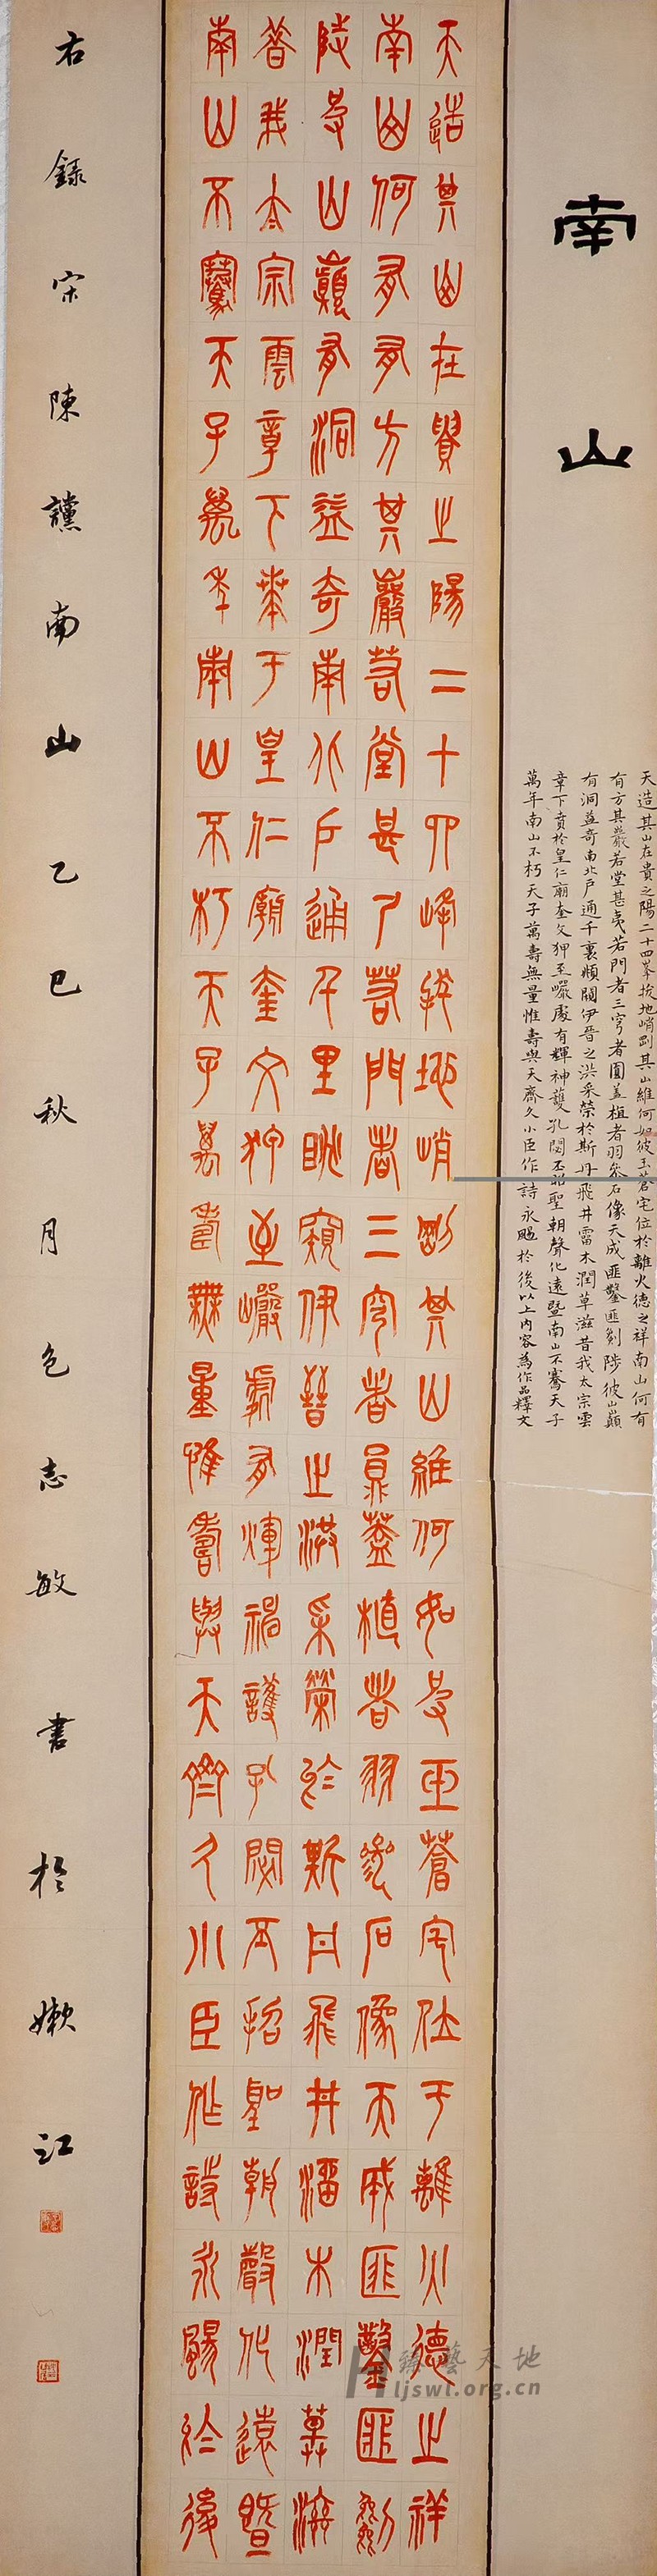 南山
天造其山在貴之陽二十四峯拔地峭剛其山維何如彼玉蒼宅位於離火德之祥南山何有
有方其巖若堂甚夷若門者三穹者圓蓋植者羽參石像天成匪鑿匪剜陟彼山巔
有洞益奇南北戶通千裏頫闚伊晉之洪采榮於斯丹飛井霤木潤草滋昔我太宗雲
章下賁於皇仁廟奎文狎至巖處有輝神護孔閟丕昭聖朝聲化遠暨南山不騫天子
萬年南山不朽天子萬壽無量惟壽與天齊久小臣作詩永颺於後以上內容為作品釋文
天造其山在貴之陽二十四峰拔地峭剛其山維何如彼玉蒼宅位于離火德之祥
南山何有有方其巖若堂甚夷若門者三穹者員蓋植者羽參石像天成匪鑿匪劖
陟彼山巔有洞益奇南北戶通千里眺窺伊晉之洪采榮於斯丹飛井溜木潤草滋
昔我太宗雲章下賁于皇仁廟奎文狎至巖處有煇神護孔閟丕招聖朝聲化遠暨
南山不騫天子萬年南山不朽天子萬壽無量惟壽與天齊久小臣作詩永颺於後
右錄宋陳讜南山乙巳秋月包志敏書於嫩江
藝天地
ljswl.org.cn